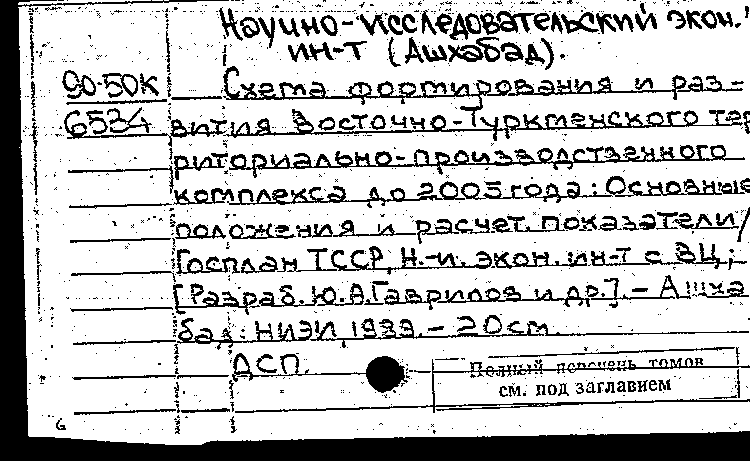 Научно-исследовательский экон.
ин-т (Ашхабад).
90-50К Схема формирования и раз-
6534 вития Восточно-Туркменского тер
риториально-производственного
комплекса до 2005 года: Основные
положения и расчет. показатели/
Госплан ТССР, Н.-и. экон. ин-т с ВЦ;
[Разраб. Ю.А.Гаврилов и др.].- Ашха
бад: НИЭИ, 1989.- 20см.
ДСП.
Полный перечень томов
см. под заглавием
6